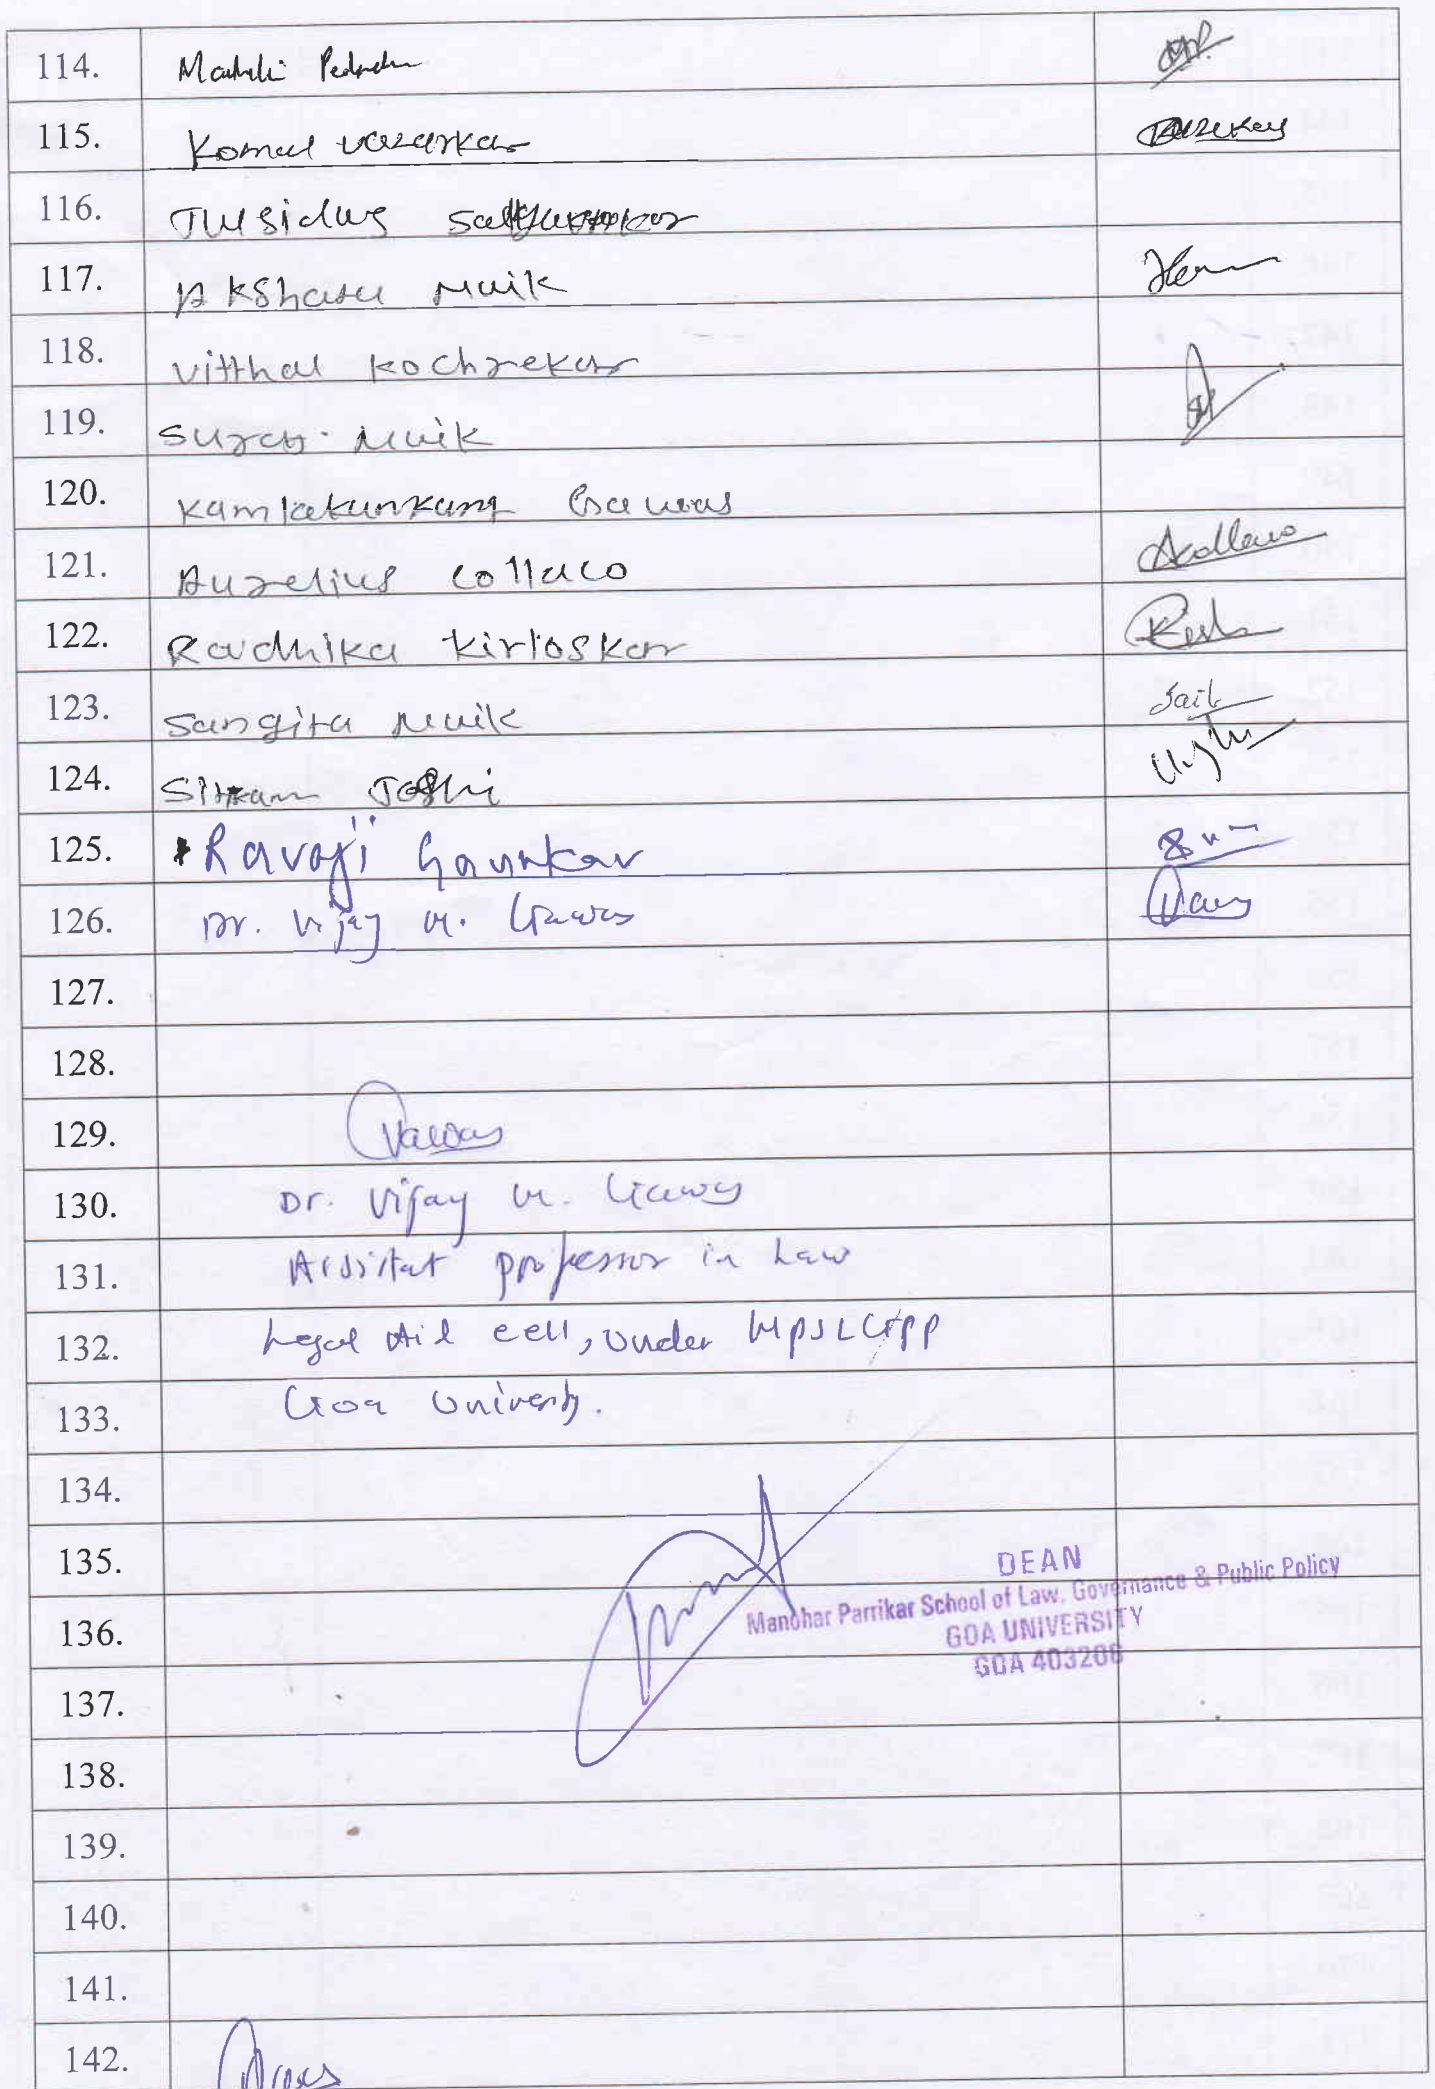 114.
115. Komal vazarkar
116. Tulsidas
117. Akshata Naik
118. Vitthal Kochrekar
119. Suraj Naik
120. Gawas
121. Aurelius Collaco Acollaco
122. Radhika Kirloskar
123. Sangita Naik
124. Joshi
125. Ravaji Gaunkar
126. Dr. Vijay M. Gawas
127.
128.
129.
130. Dr. Vijay M. Gawas
131. Assistat professor in Law
132. Legal Aid cell, under MPSLGPP
133. Goa University.
134.
135. DEAN
Manohar Parrikar School of Law, Governance & Public Policy
136. GOA UNIVERSITY
GOA 403206
137.
138.
139.
140.
141.
142.